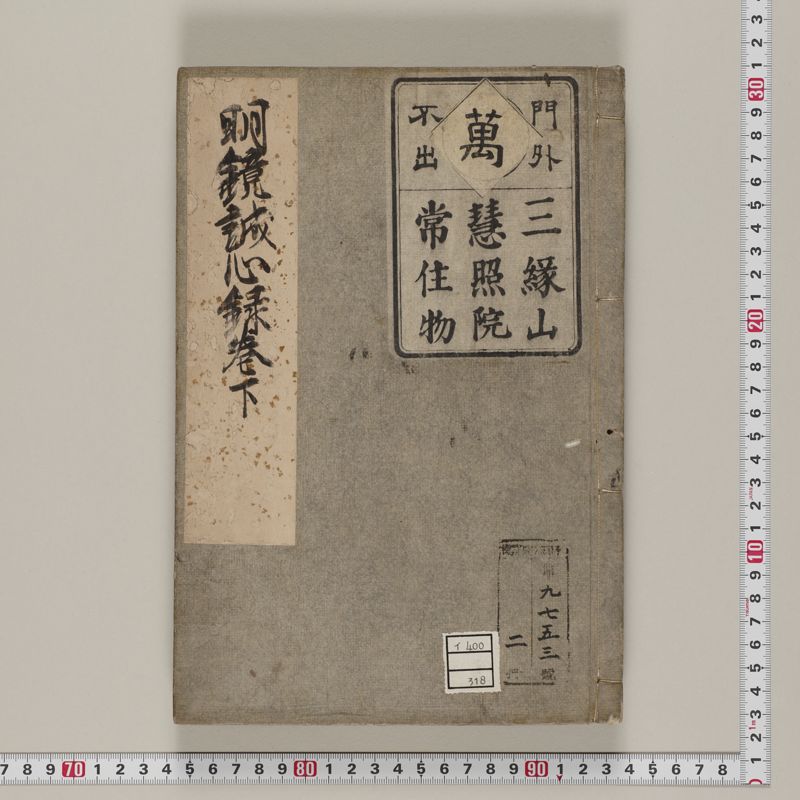 明鏡誠心録巻下
門外
不出
萬
三縁山
慧照院
常住物
九七五三
二
イ 400
318
1 2 3 4 5 6 7 8 9 10 1 2 3 4 5 6 7 8 9 20 1 2 3 4 5 6 7 8 9 30 1 2 3
7 8 9 70 1 2 3 4 5 6 7 8 9 80 1 2 3 4 5 6 7 8 9 90 1 2 3 4 5 6 7 8